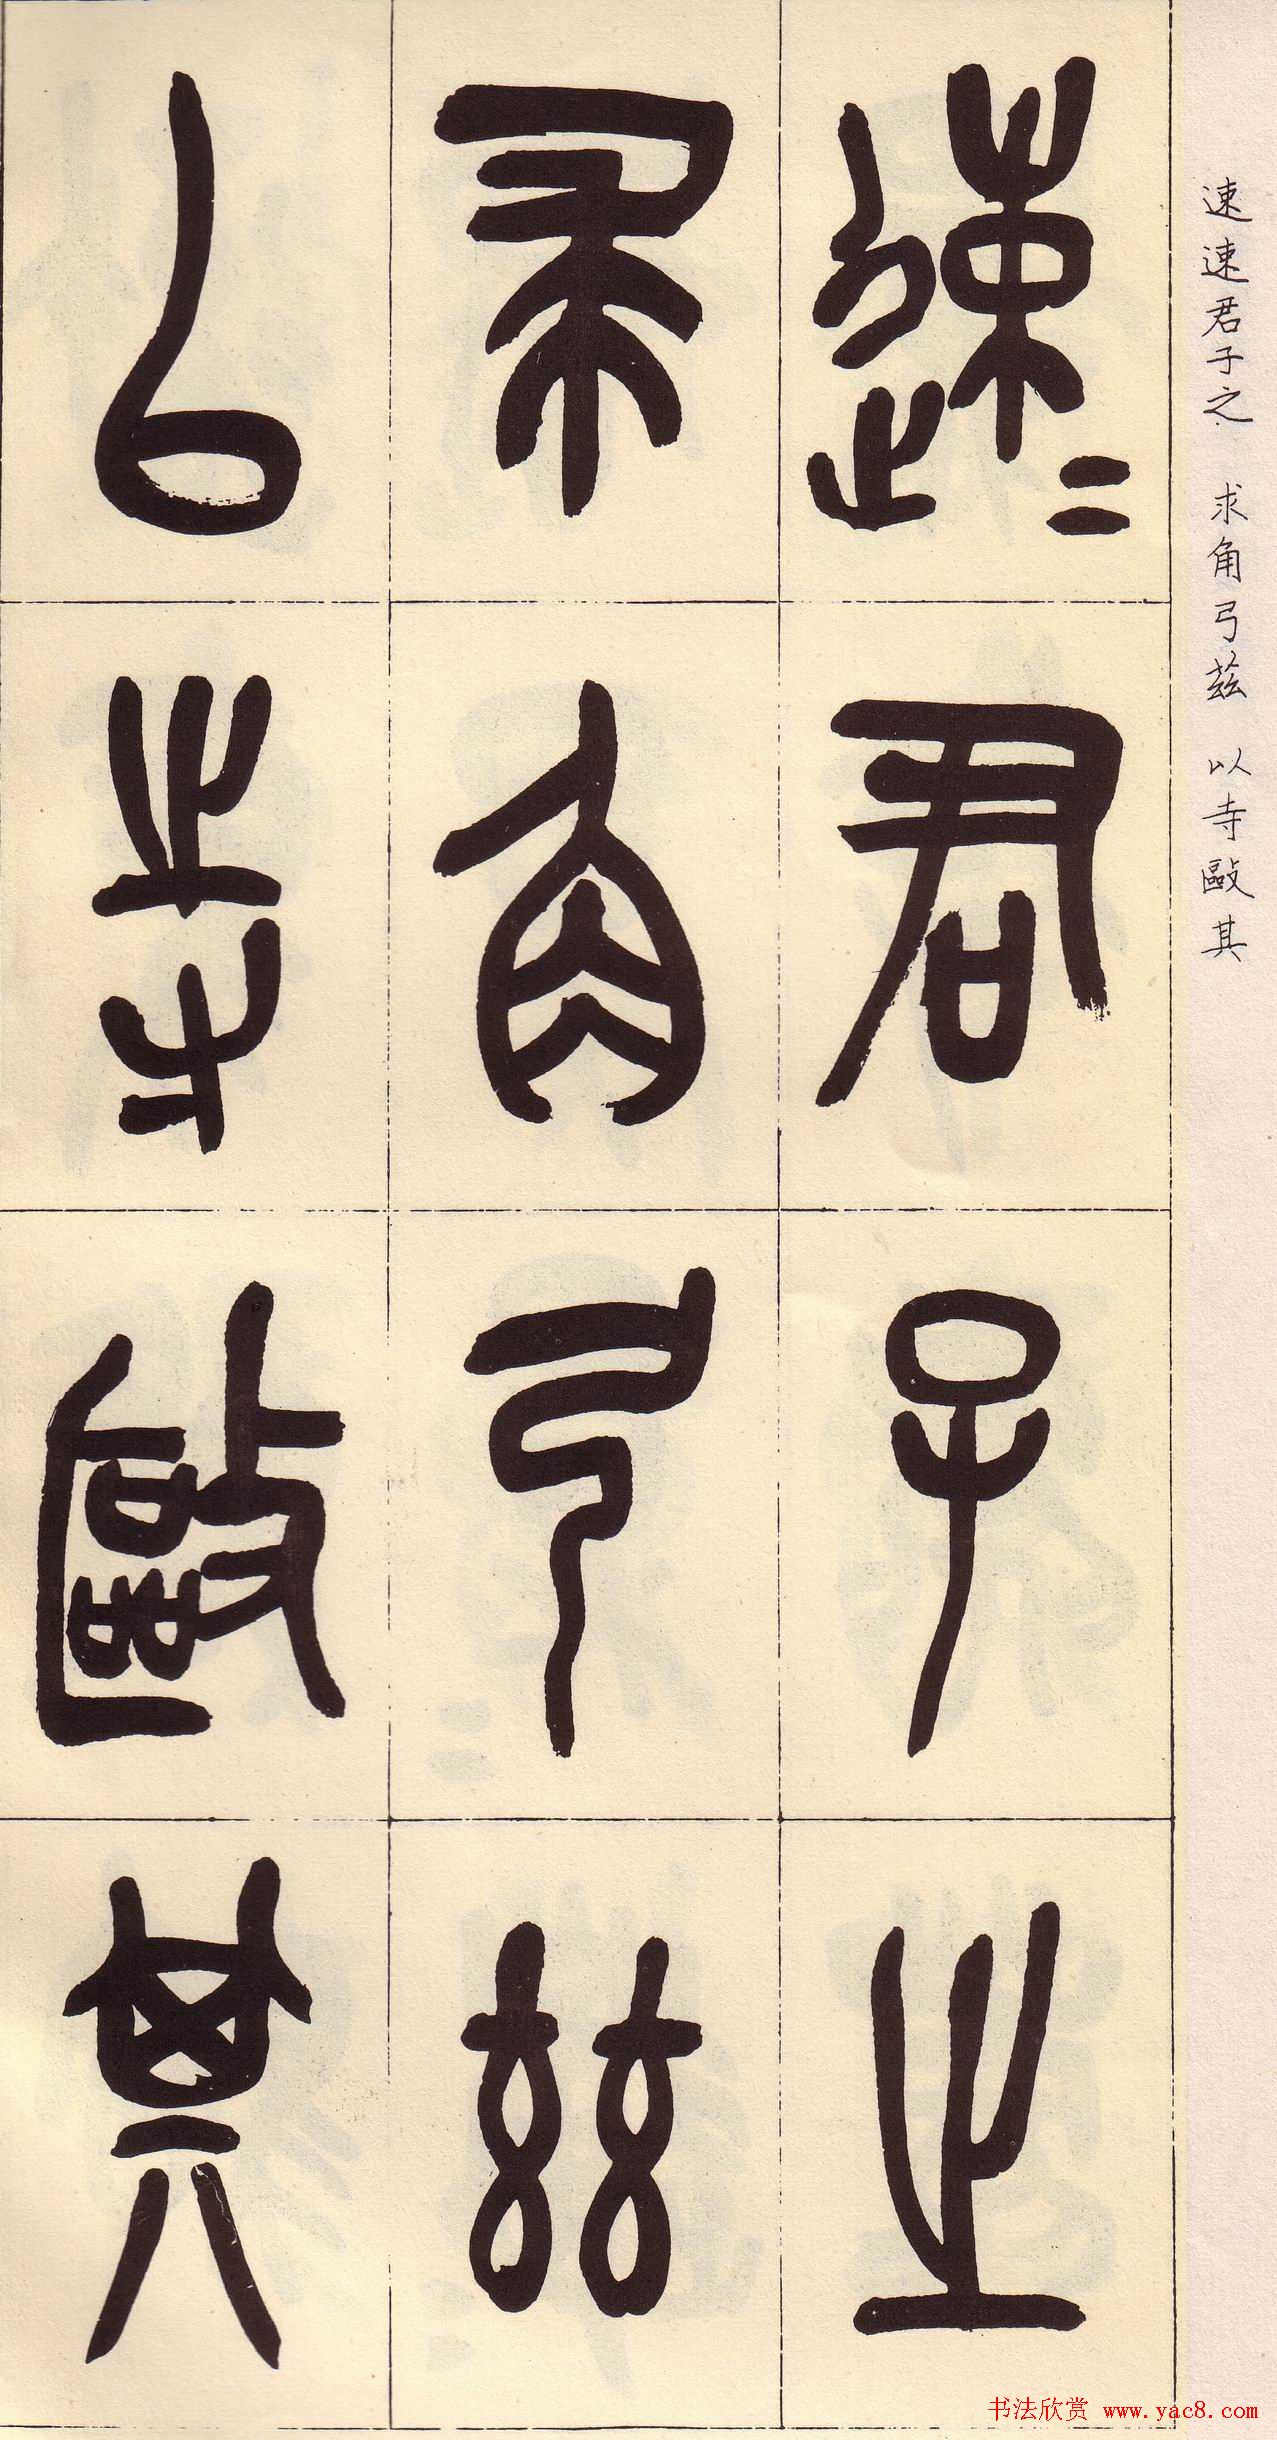 速速君子之 求角弓兹 以寺敺其
速〓君子之
求角弓兹
以寺敺其
书法欣赏 www.yac8.com